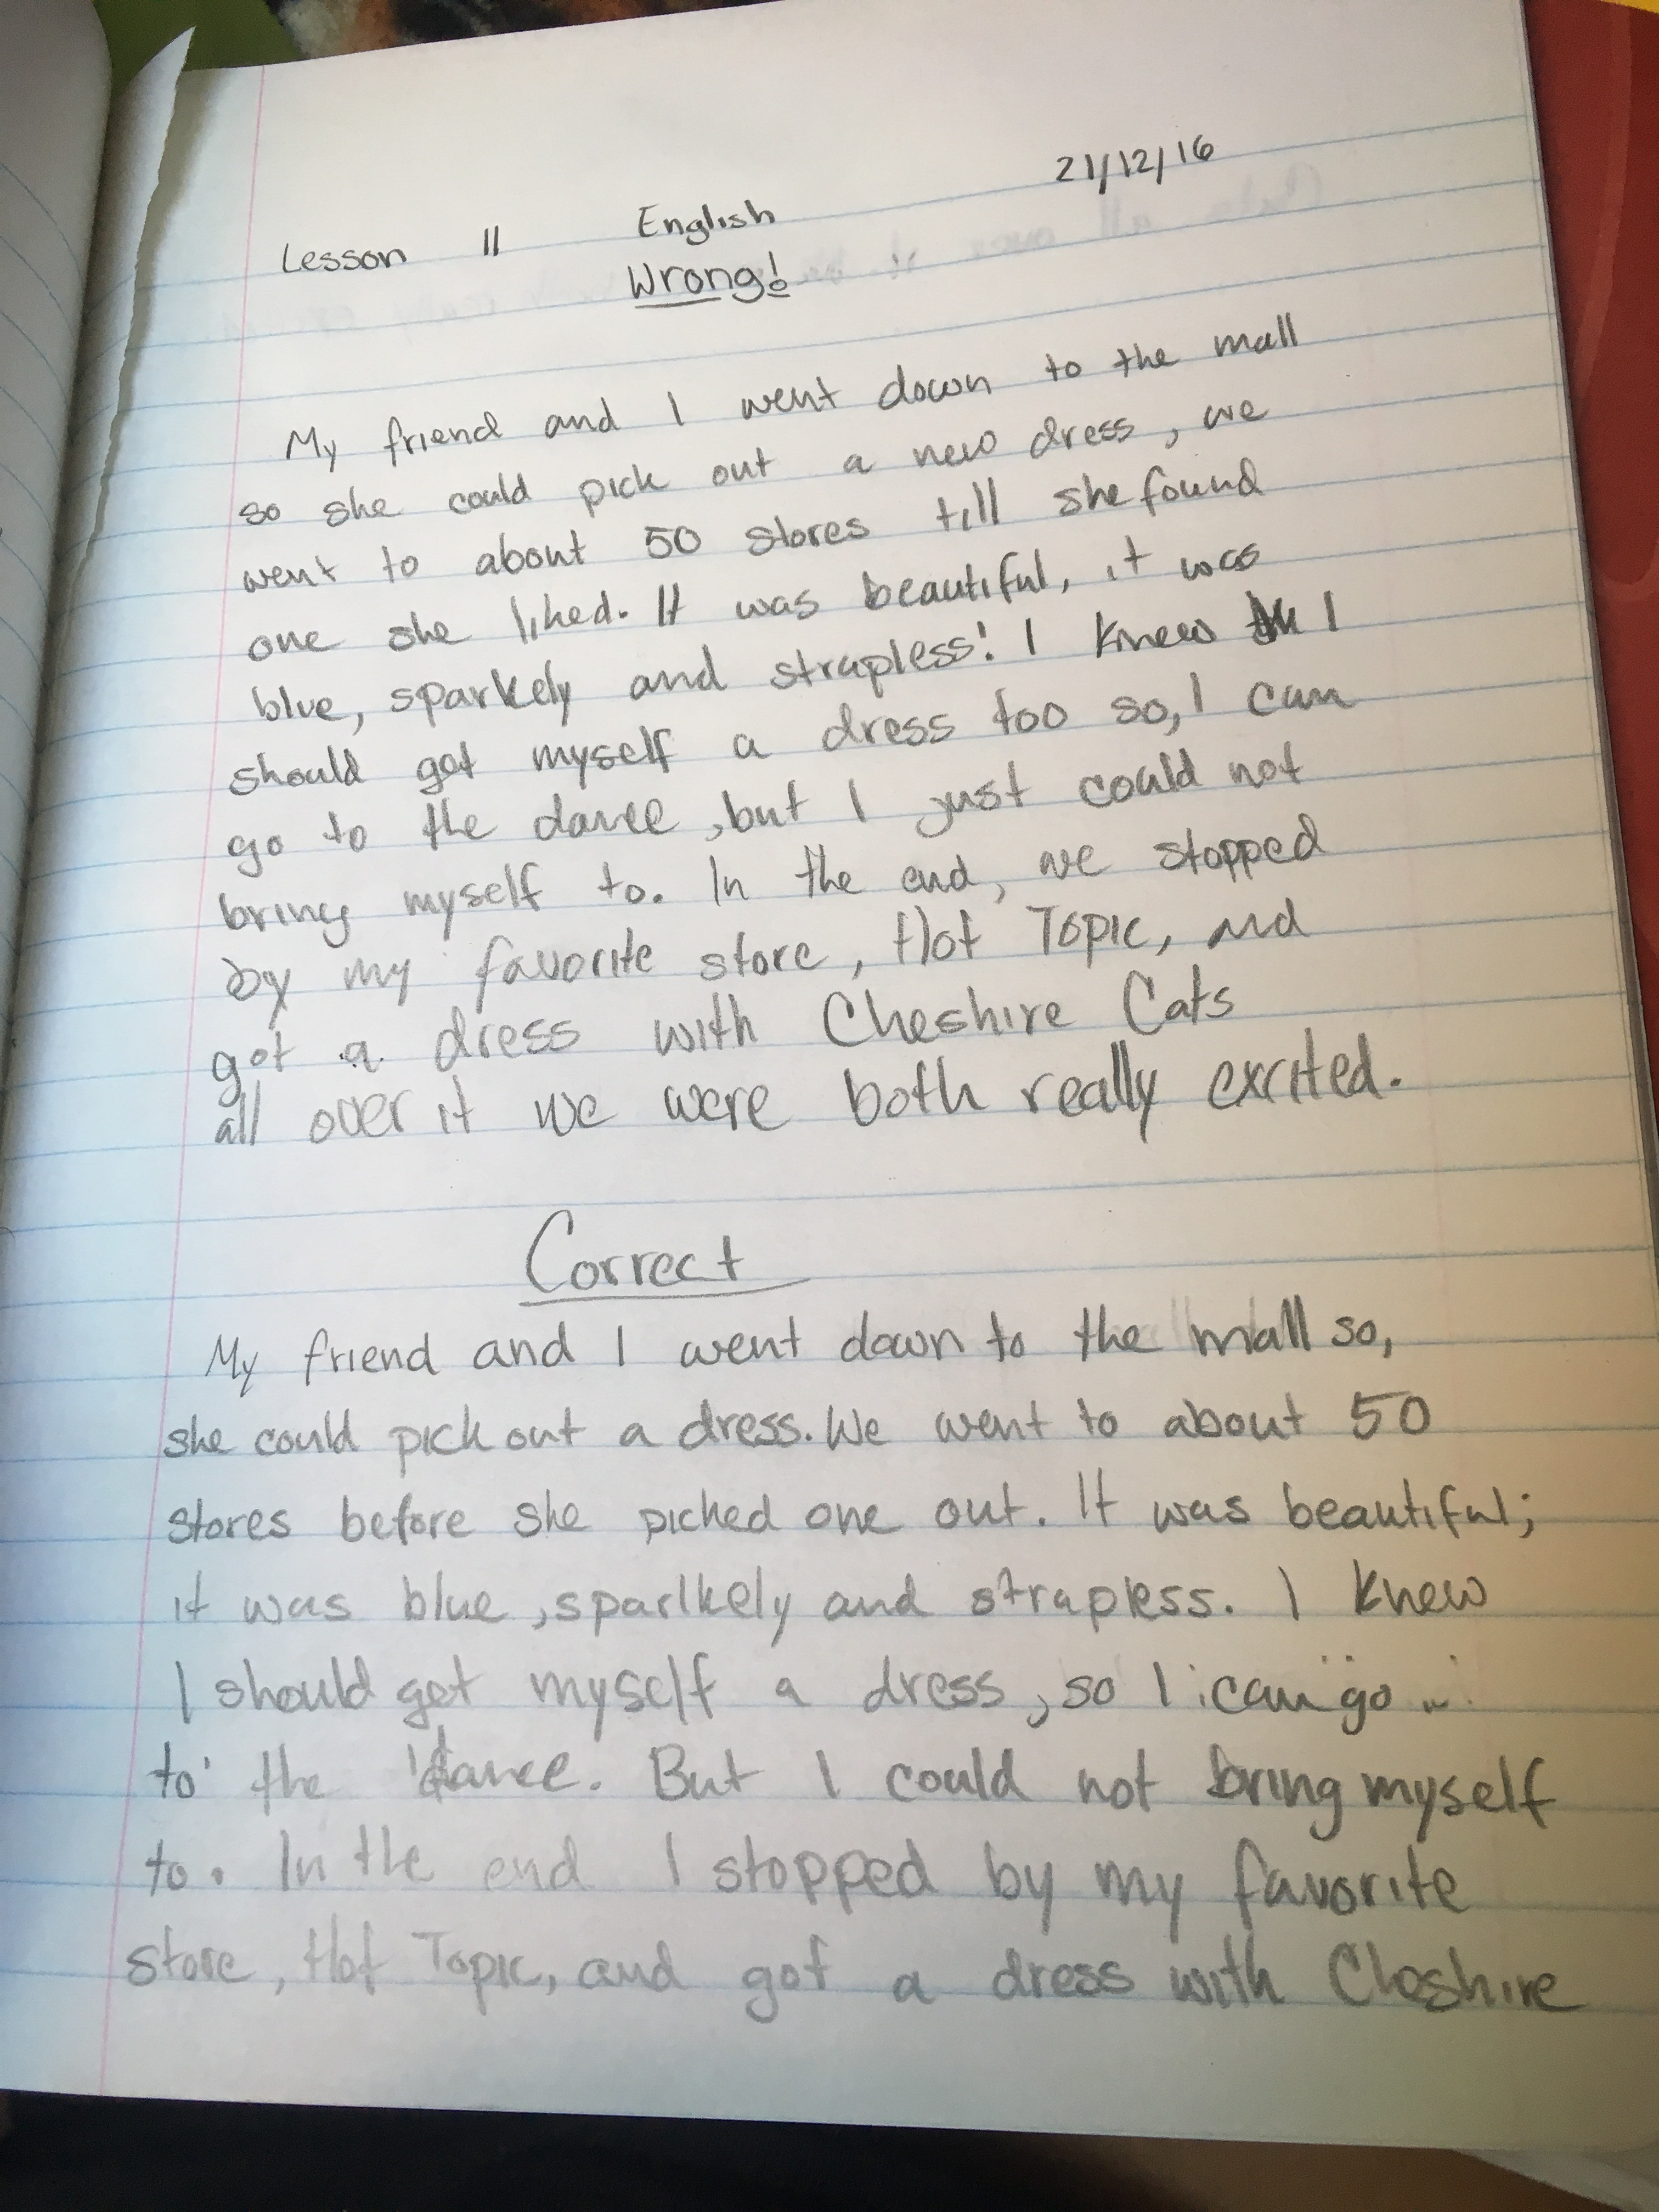 21/12/16
Lesson 11 English
Wrong!
My friend and I went down to the mall
so she could pick out a new dress, we
went to about 50 stores till she found
one she liked. It was beautiful, it was
blue, sparkely and strapless! I knew I
should get myself a dress too so, I can
go to the dance, but I just could not
bring myself to. In the end, we stopped
by my favorite store, Hot Topic, and
got a dress with Cheshire Cats
all over it we were both really excited.
Correct
My friend and I went down to the mall so,
she could pick out a dress. We went to about 50
stores before she picked one out. It was beautiful;
it was blue, sparlkely and strapless. I knew
I should get myself a dress, so I can go
to the dance. But I could not bring myself
to. In the end I stopped by my favorite
store, Hot Topic, and got a dress with Cheshire